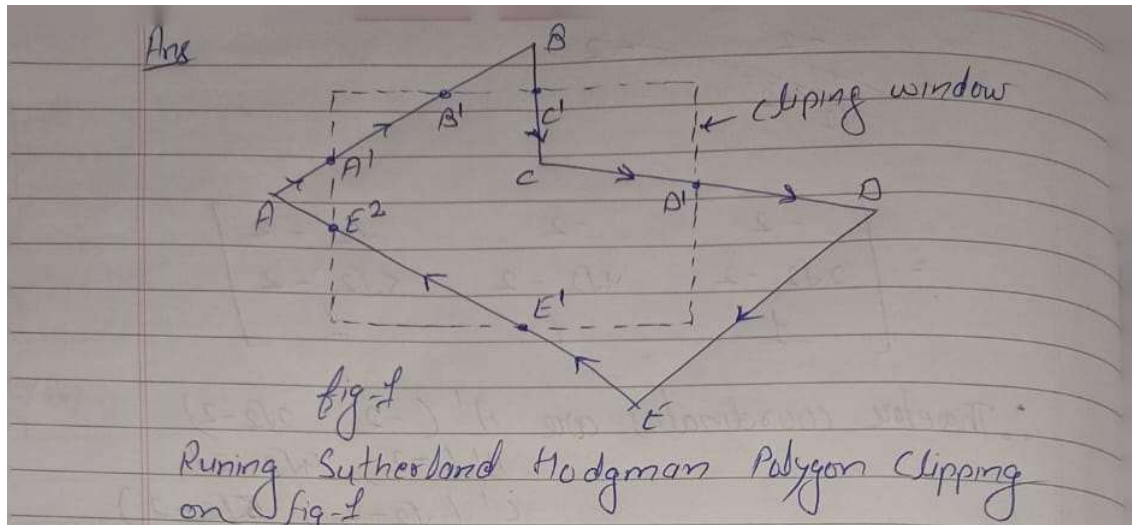 Ans
B
B'
C'
← cliping window
A'
C
D'
D
A
E²
E'
fig-1
E
Runing Sutherland Hodgman Polygon Clipping
on fig-1